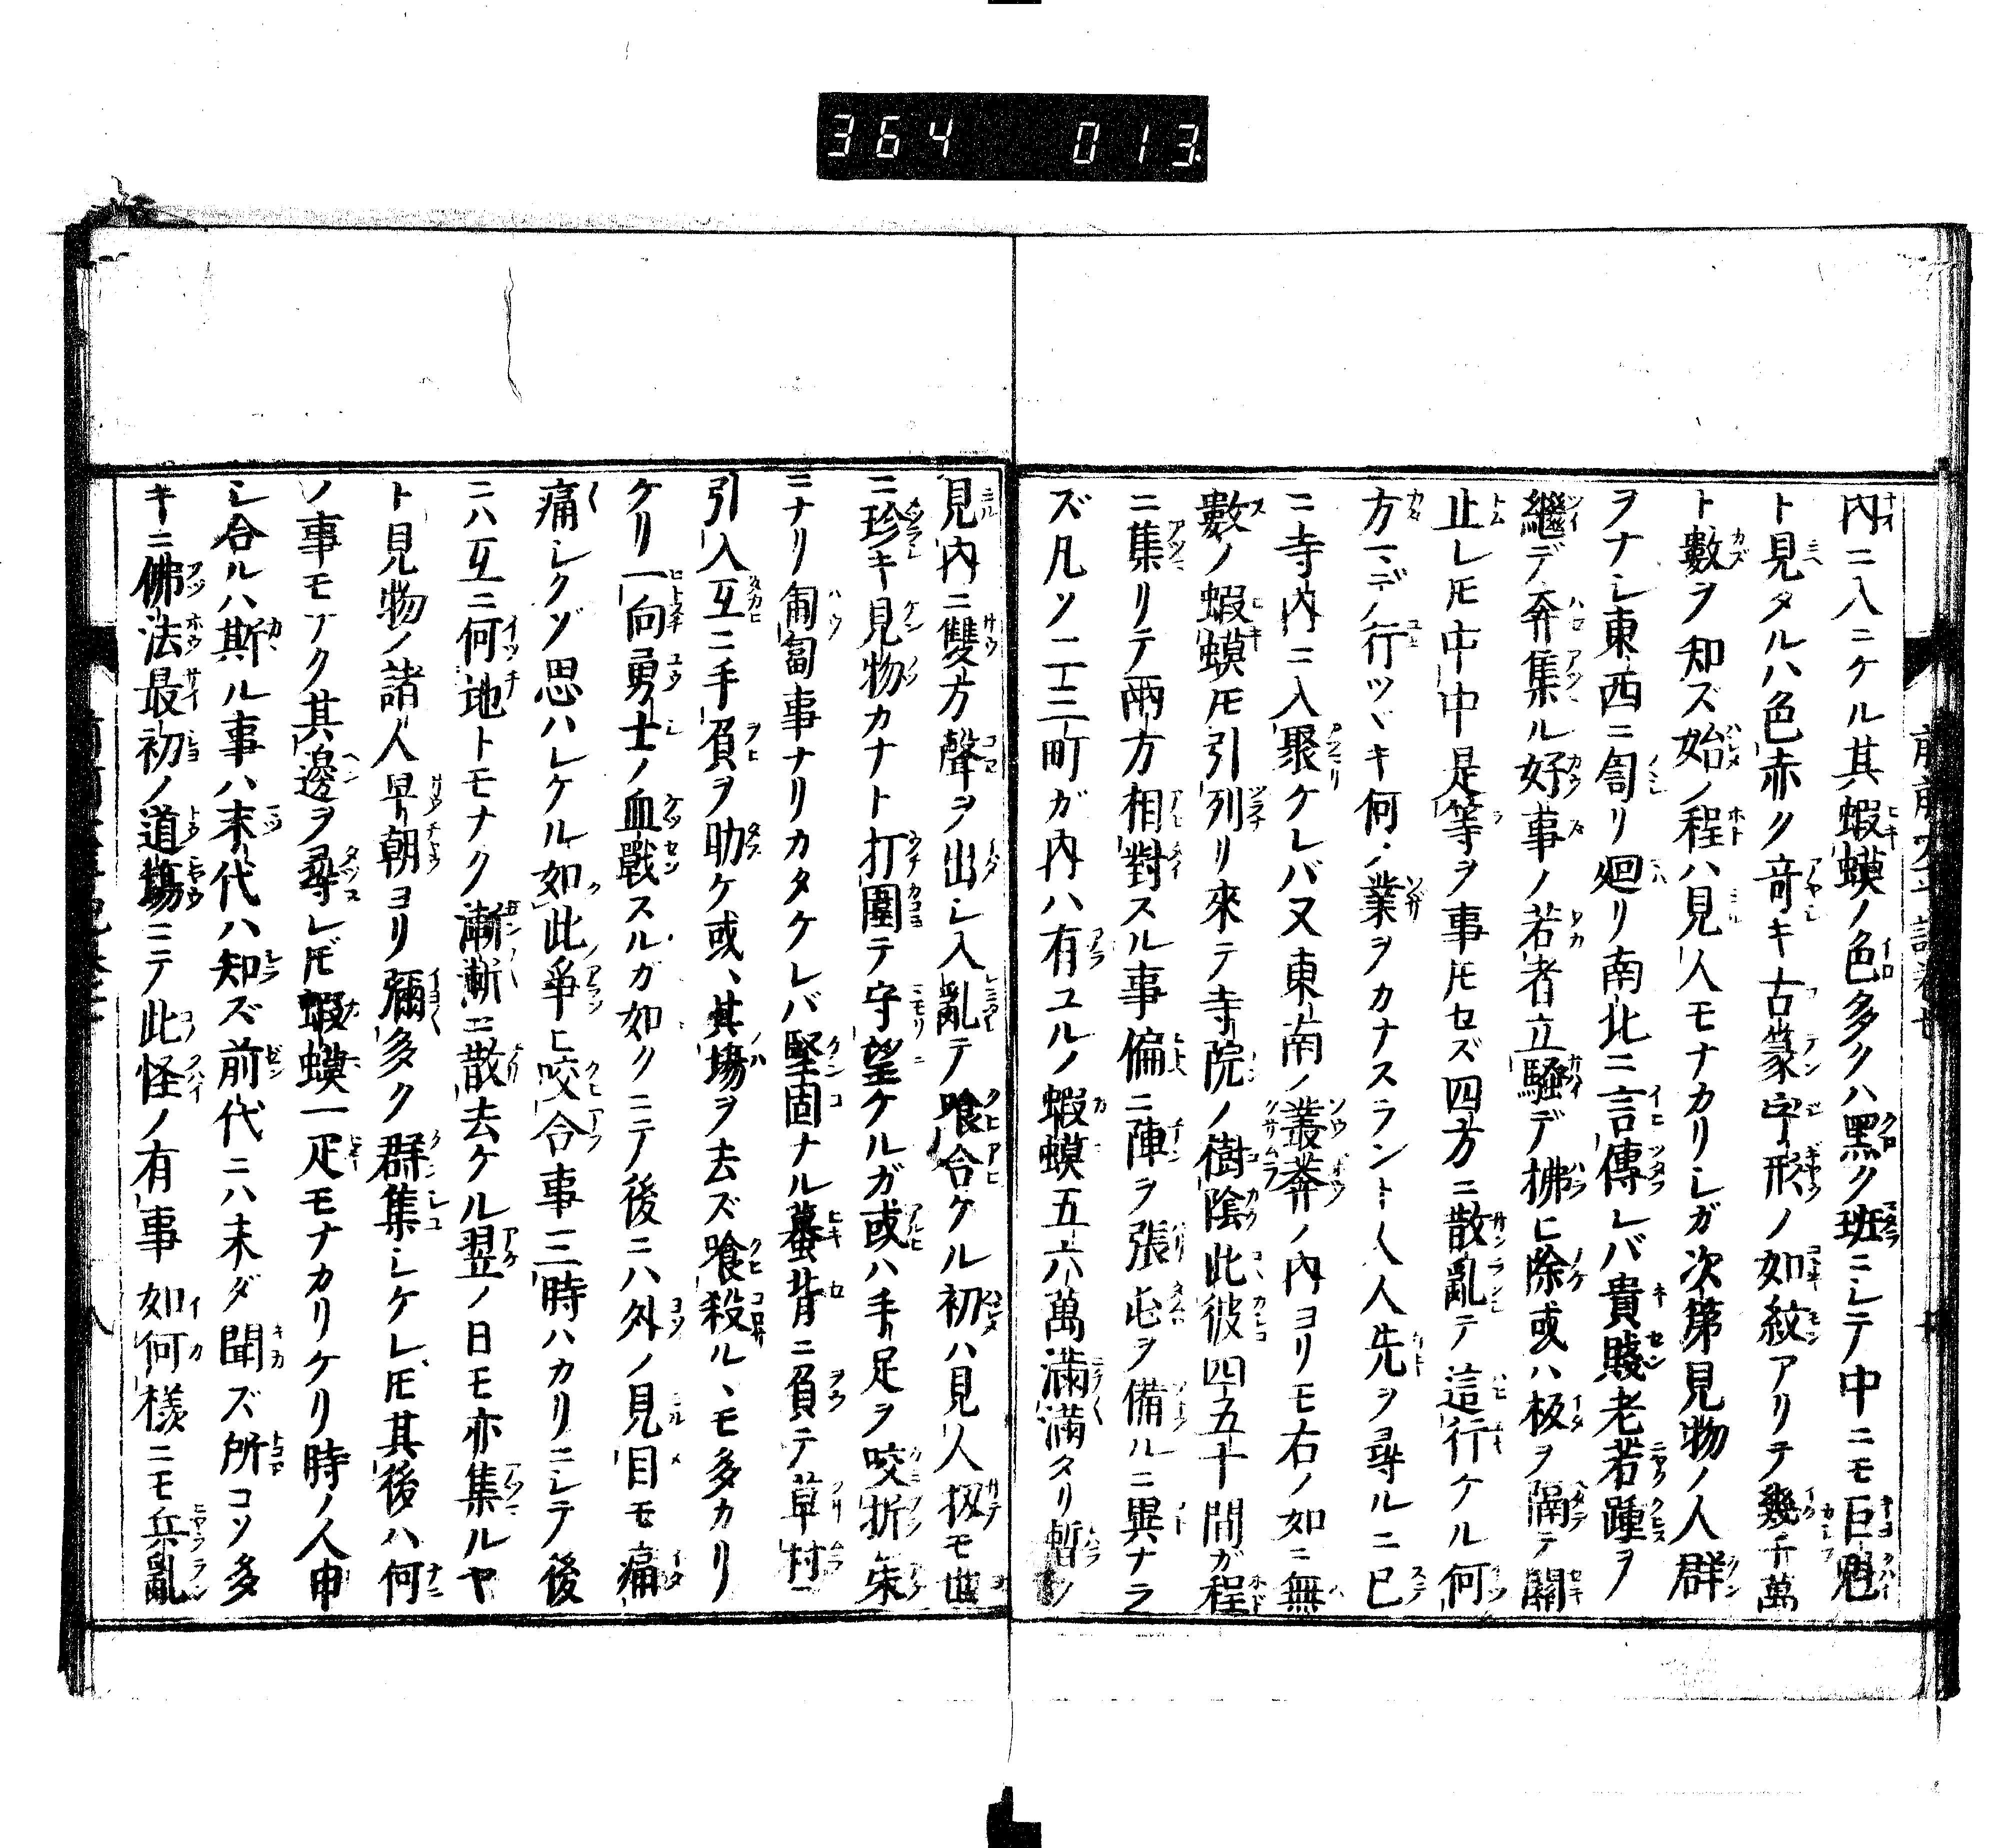 364 013
内ニ入ニケル其蝦蟆ノ色多クハ黑ク班ニシテ中ニモ巨魁
ト見タルハ色赤ク竒キ古篆字形ノ如紋アリテ幾千萬
ト數ヲ知ズ始ノ程ハ見人モナカリシガ次第見物ノ人群
ヲナシ東西ニ訇リ廻リ南北ニ言傳レバ貴賤老若踵ヲ
繼デ奔集ル好事ノ若者立騷デ拂ヒ除或ハ板ヲ隔テ關
止レ𪜈中中是等ヲ事𪜈セズ四方ニ散亂テ這行ケル何
方マデ行ツヾキ何ノ業ヲカナスラント人人先ヲ尋ルニ已
ニ寺内ニ入聚ケレバ又東南ノ叢莽ノ内ヨリモ右ノ如ニ無
數ノ蝦蟆𪜈引列リ來テ寺院ノ樹陰此彼四五十間ガ程
ニ集リテ兩方相對スル事偏ニ陣ヲ張屯ヲ備ルニ異ナラ
ズ凡ソ二三町ガ内ハ有ユルノ蝦蟆五六萬滿滿タリ暫シ
見内ニ雙方聲ヲ出シ入亂テ喰合ケル初ハ見人扨モ世
ニ珍キ見物カナト打圍テ守望ケルガ或ハ手足ヲ咬折朱
ニナリ匍匐事ナリカタケレバ堅固ナル蟇背ニ負テ草村ニ
引入互ニ手負ヲ助ケ或ハ其場ヲ去ズ喰殺ルヽモ多カリ
ケリ一向勇士ノ血戰スルガ如クニテ後ニハ外ノ見目モ痛
痛シクゾ思ハレケル如此爭ヒ咬合事三時ハカリニシテ後
ニハ互ニ何地トモナク漸漸ニ散去ケル翌ノ日モ亦集ルヤ
ト見物ノ諸人早朝ヨリ彌多ク群集シケレ𪜈其後ハ何
ノ事モナク其邊ヲ尋レ𪜈蝦蟆一疋モナカリケリ時ノ人申
シ合ルハ斯ル事ハ末代ハ知ズ前代ニハ未ダ聞ズ所コソ多
キニ佛法最初ノ道塲ニテ此怪ノ有事如何樣ニモ兵亂
八